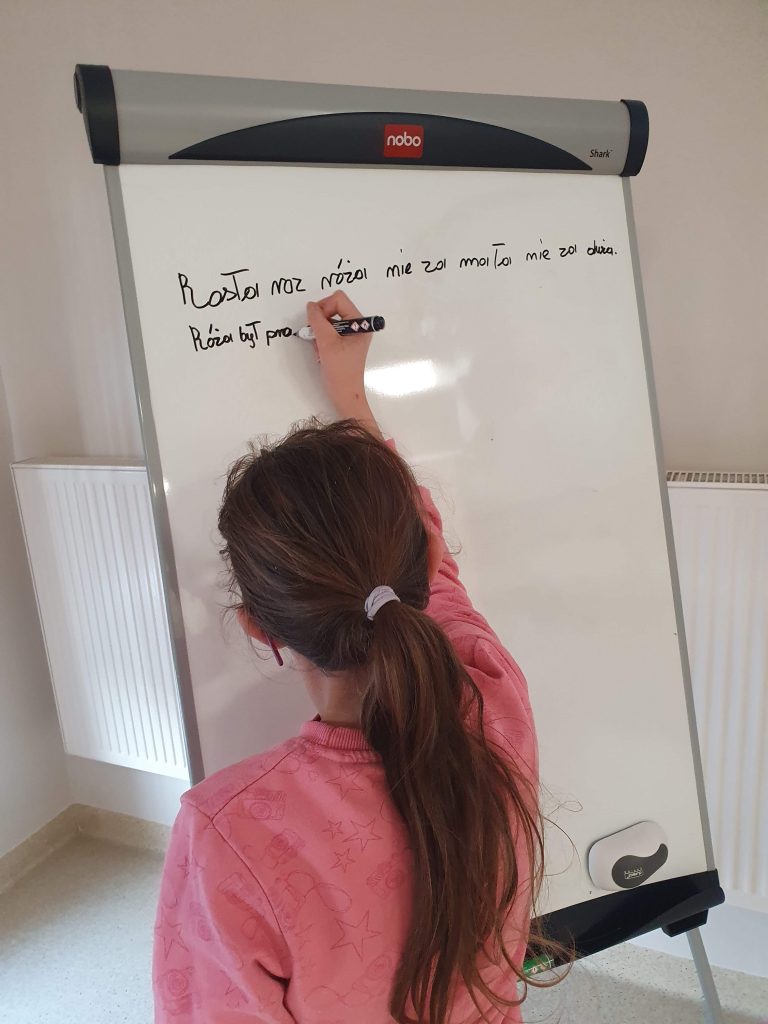 nobo
Shark™
Rosła raz róża nie za mała nie za duża.
Róża był pra